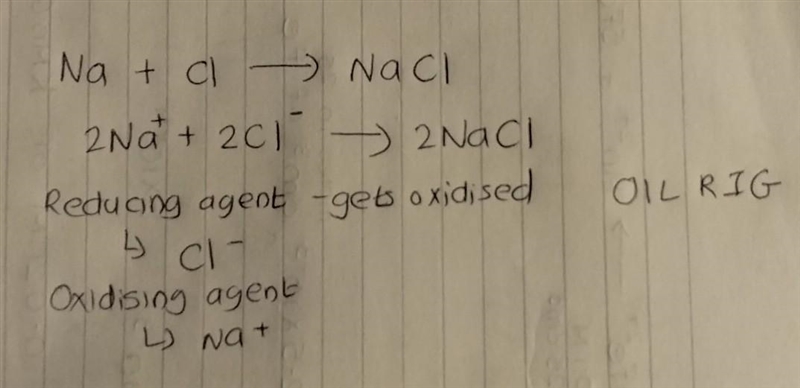 Na + Cl → NaCl
2Na⁺ + 2Cl⁻ → 2NaCl
Reducing agent - gets oxidised OIL RIG
↳ Cl⁻
Oxidising agent
↳ Na⁺